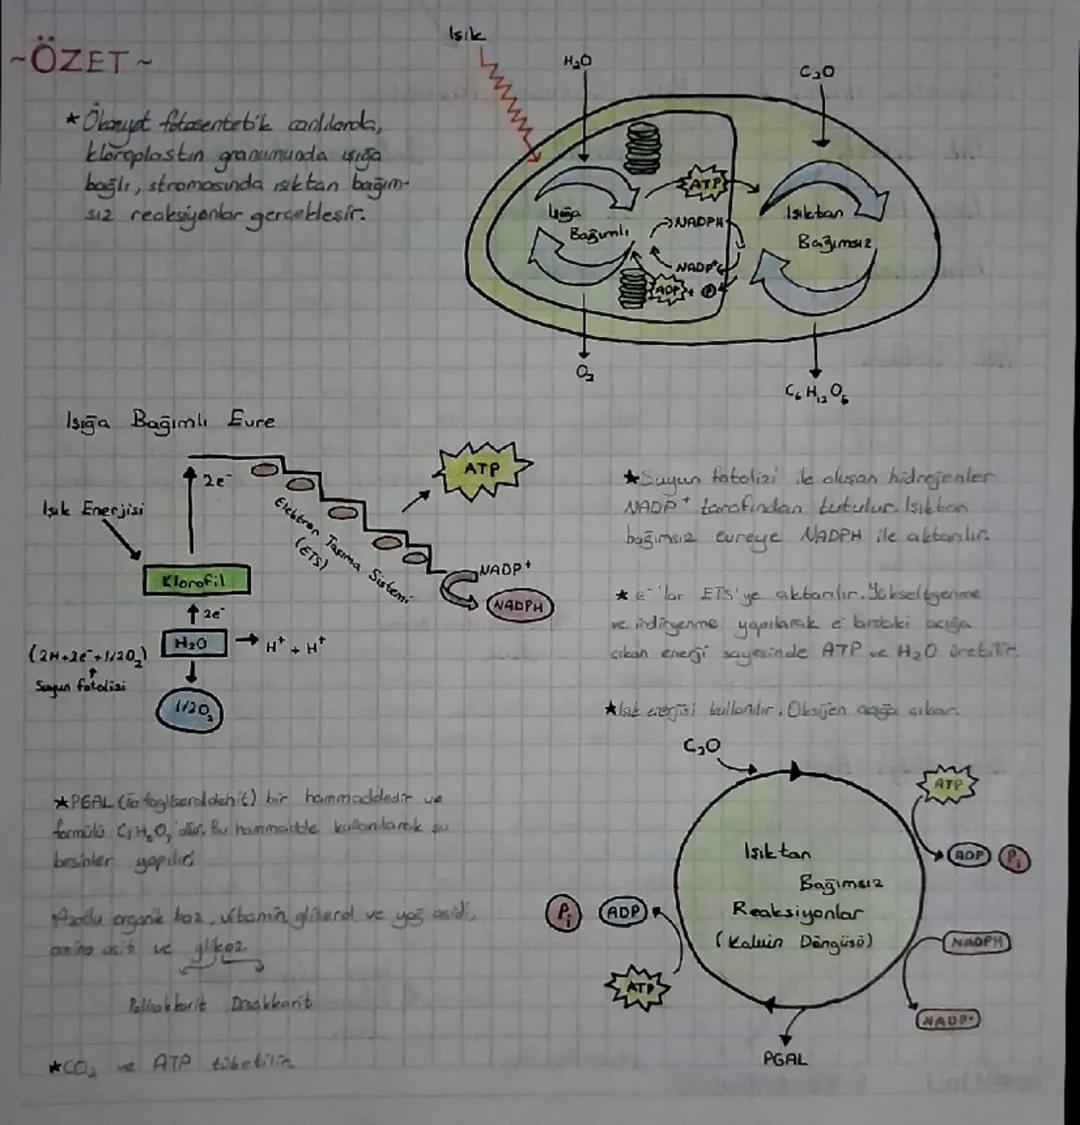 ~ÖZET~
* Ökaryot fotosentetik canlılarda,
kloroplastın granumunda ışığa
bağlı, stromasında ışıktan bağım-
sız reaksiyonlar gerçekleşir.
Işık
H₂O
C₂O
ATP
Işığa
Bağımlı
NADPH
NADP⁺
ADP + P
Işıktan
Bağımsız
O₂
C₆H₁₂O₆
Işığa Bağımlı Evre
Işık Enerjisi
2e⁻
Klorofil
2e⁻
H₂O
H⁺ + H⁺
(2H+2e⁻+1/2O₂)
Suyun fotolizi
1/2O₂
Elektron Taşıma Sistemi
(ETS)
ATP
NADP⁺
NADPH
*Suyun fotolizi ile oluşan hidrojenler
NADP⁺ tarafından tutulur. Işıktan
bağımsız evreye NADPH ile aktarılır.
* e⁻'lar ETS'ye aktarılır. Yükseltgenme
ve indirgenme yapılarak e⁻ lardaki açığa
çıkan enerji sayesinde ATP ve H₂O üretilir.
*Işık enerjisi kullanılır. Oksijen açığa çıkar.
*PGAL bir hammaddedir ve
formülü Bu hammadde kullanılarak şu
besinler yapılır;
Azotlu organik baz, vitamin, gliserol ve yağ asidi,
amino asit ve glikoz.
Polisakkarit Disakkarit
*CO₂ ve ATP tüketilir.
C₂O
ATP
ADP Pi
Işıktan
Bağımsız
Reaksiyonlar
(Kalvin Döngüsü)
Pi ADP
ATP
NADPH
NADP⁺
PGAL